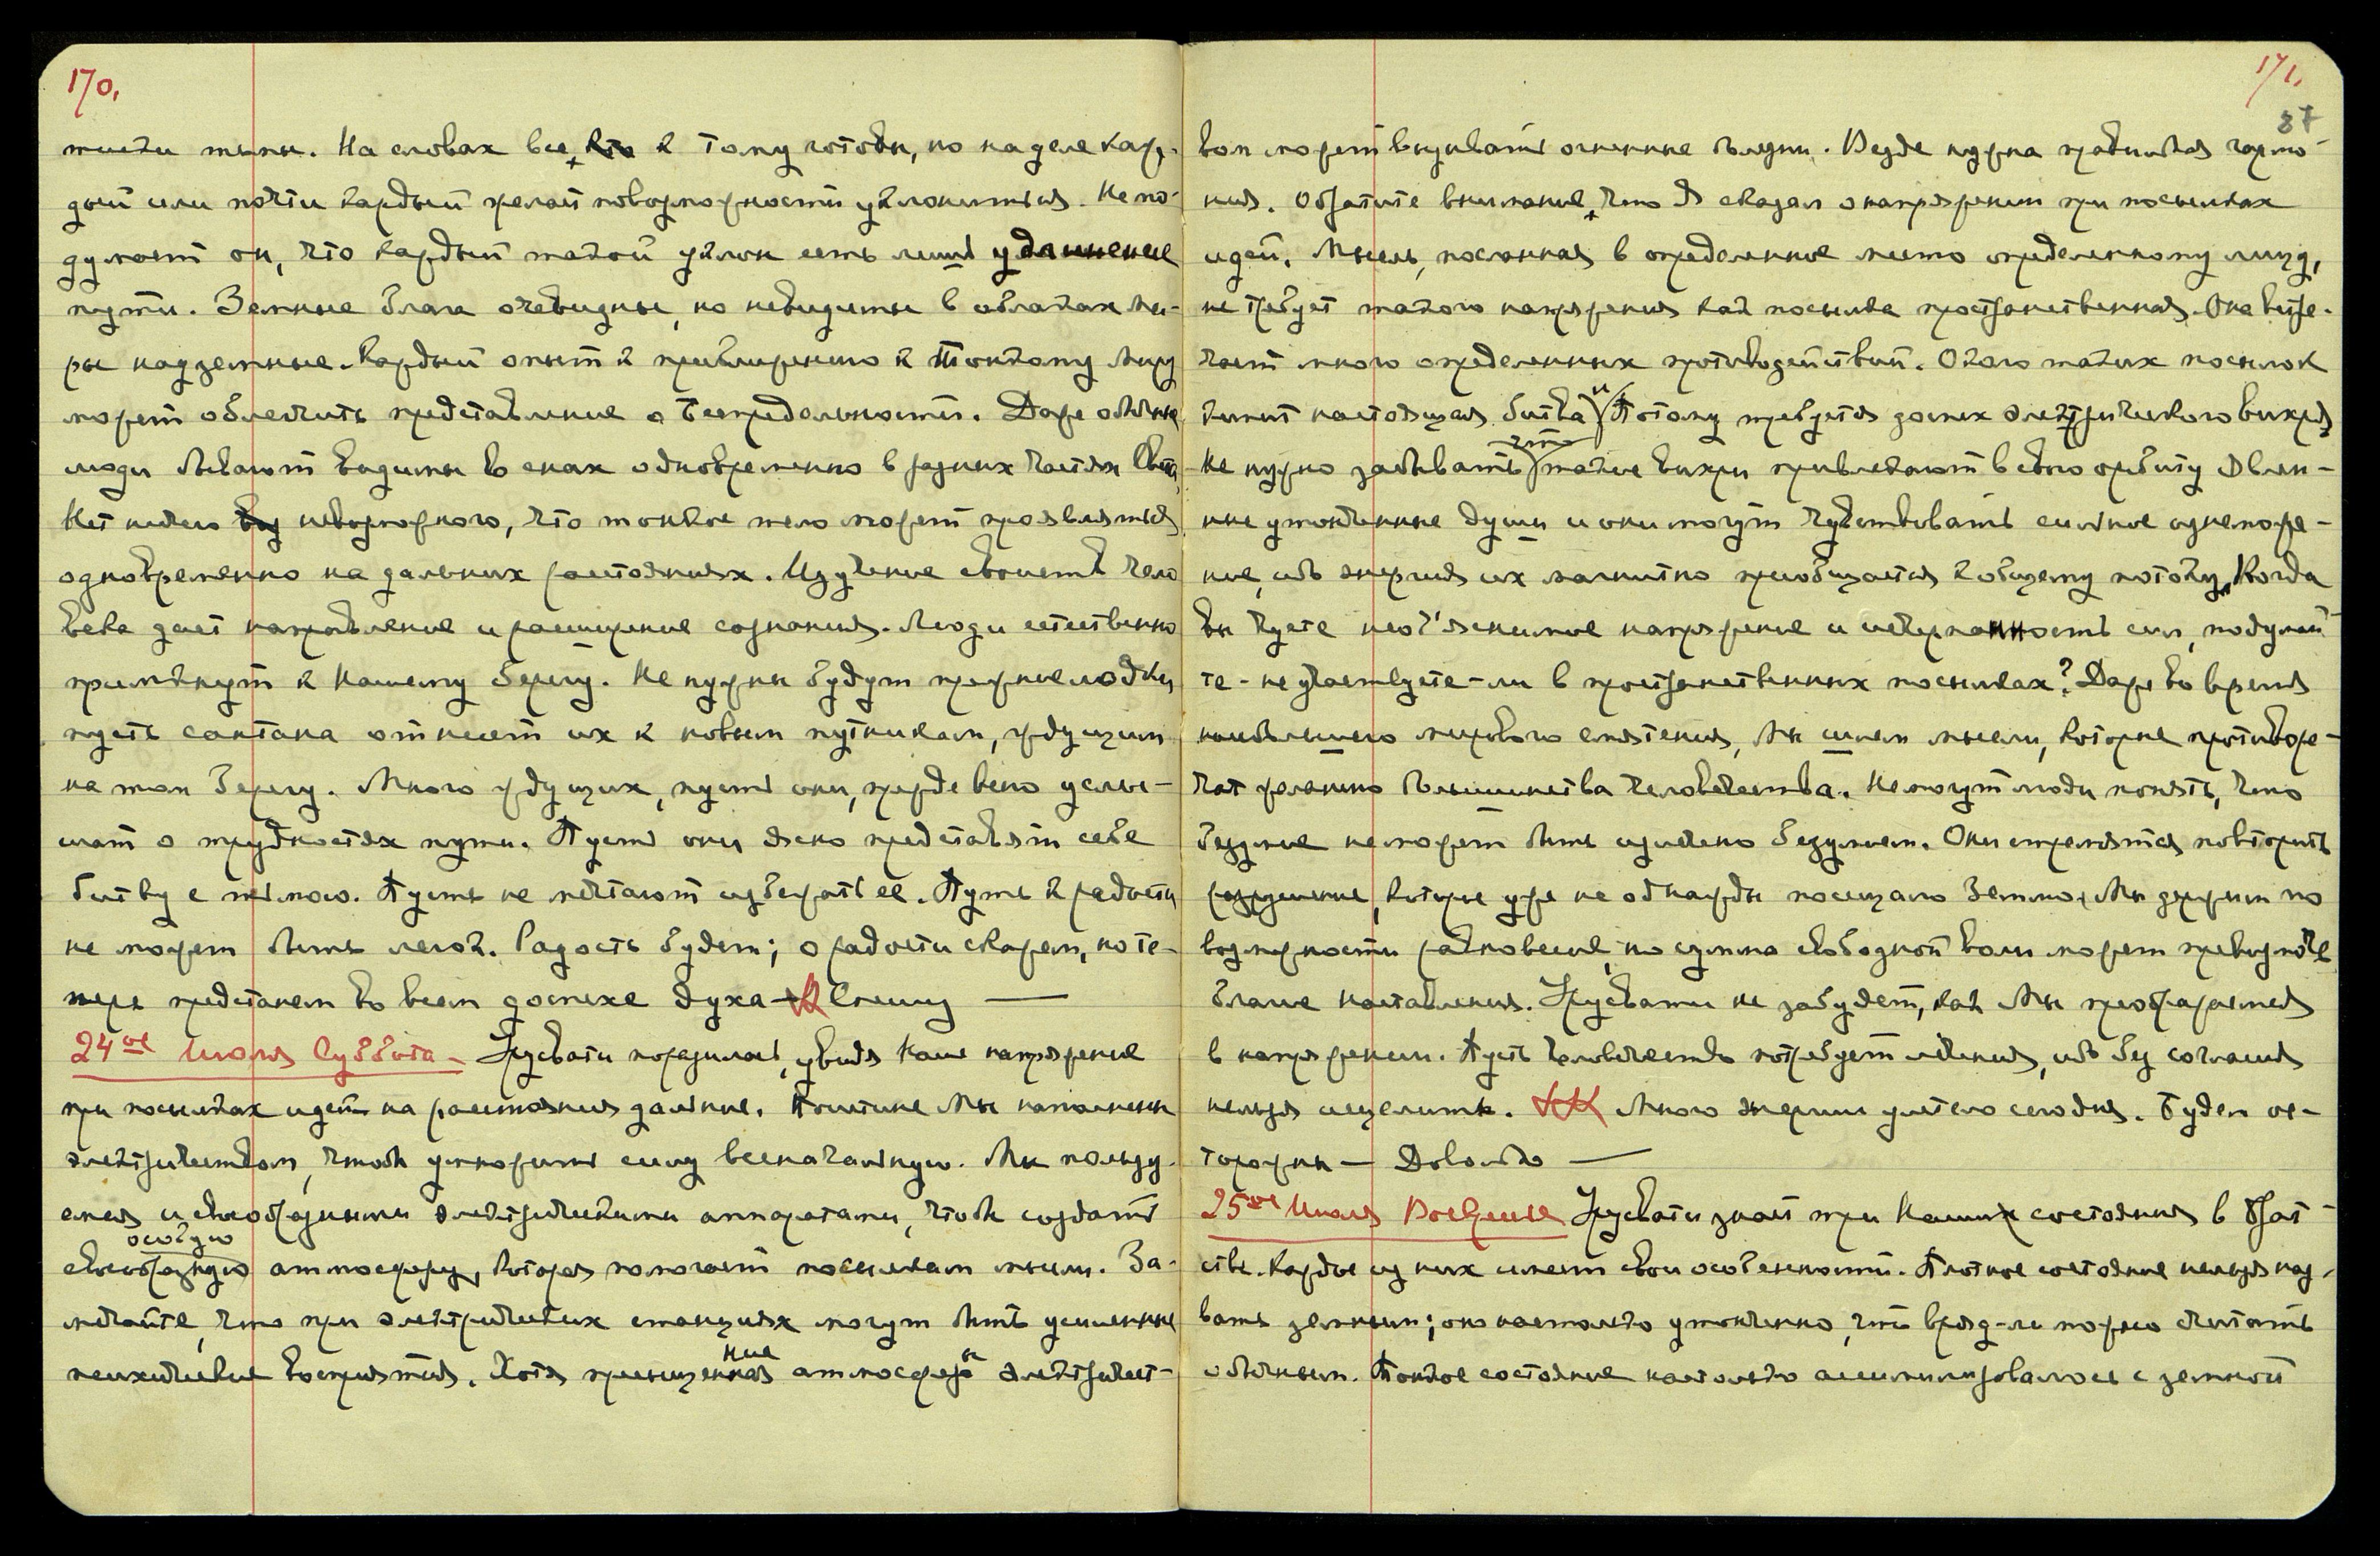 170.
тисти тьмы. На словах все, кто к тому готовы, но на деле каж-
дый или почти каждый желает по возможности уклониться. Не по-
думает он, что каждый такой уклон есть лишь удлинение
пути. Земные блага очевидны, но невидимы в облаках ми-
ры надземные. Каждый опыт к приближению к Тонкому Миру
может облегчить представление о Беспредельности. Даже обычные
люди бывают видимы во снах одновременно в разных частях Света.
Нет ничего невозможного, что тонкое тело может проявляться
одновременно на дальних расстояниях. Изучение свойств чело
века дает направление и расширение сознания. Люди естественно
примкнут к Нашему Берегу. Не нужны будут прежние лодки,
пусть сантана отнесет их к новым путникам, ждущим
на том Берегу. Много ждущих, пусть они, прежде всего услы-
шат о трудностях пути. Пусть они ясно представят себе
битву с тьмою. Пусть не мечтают избежать ее. Путь к радости
не может быть легок. Радость будет; о радости скажем, но те-
перь предстанем во всем доспехе духа — Спешу —
24ое Июля Суббота — Урусвати поразилась, увидя Наше напряжение
при посылках идей на расстояния дальние. Поистине Мы наполнены
электричеством, чтобы умножить силу всеначальную. Мы пользу-
емся и своеобразными электрическими аппаратами, чтобы создать
особую
своеобразную атмосферу, которая помогает посылкам мысли. За-
мечайте, что при электрических станциях могут быть усиленные
психические восприятия. Хотя насыщение атмосферы электричест-
171.
87
вом может вызывать огненные болезни. Везде нужна правильная гармо-
ния. Обратите внимание, что Я сказал о напряжении при посылках
идей. Мысль, посланная в определенное место определенному лицу,
не требует такого напряжения как посылка пространственная. Она встре-
чает много определенных противодействий. Около таких посылок
кипит настоящая битва и потому требуется доспех электрического вихря.
что
Не нужно забывать такие вихри привлекают в свою орбиту явлен-
ные утонченные души и они могут чувствовать сильное изнеможе-
ние, ибо энергия их магнитно приобщается к общему потоку. Когда
вы чуете необ'яснимое напряжение и исчерпанность сил, подумай-
те - не участвуете-ли в пространственных посылках? Даже во время
наибольшего мирового смятения, Мы шлем мысли, которые противоре-
чат желанию большинства человечества. Не могут люди понять, что
безумие не может быть излечено безумием. Они стремятся повторить
разрушение, которое уже не однажды посещало Землю. Мы держим по
возможности равновесие, но сумма свободной воли может превозмочь
благие наставления. Урусвати не забудет, как Мы преображаемся
в напряжении. Пусть человечество потребует лечения, ибо без согласия
нельзя исцелить. Много энергии улетело сегодня. Будем ос-
торожны — Довольно —
25ое Июля Воскресенье Урусвати знает три Наших состояния в Брат-
стве. Каждое из них имеет свои особенности. Плотное состояние нельзя наз-
вать земным; оно настолько утонченно, что вряд-ли можно считать
обычным. Тонкое состояние настолько ассимилировалось с земной